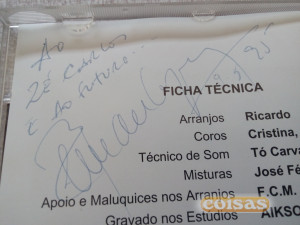 Ao
Zé Carlos
e ao futuro...
95
FICHA TÉCNICA
Arranjos Ricardo
Coros Cristina,
Técnico de Som Tó Carva
Misturas José Fé
Apoio e Maluquices nos Arranjos F.C.M.
Gravado nos Estúdios AIKSO
coisas